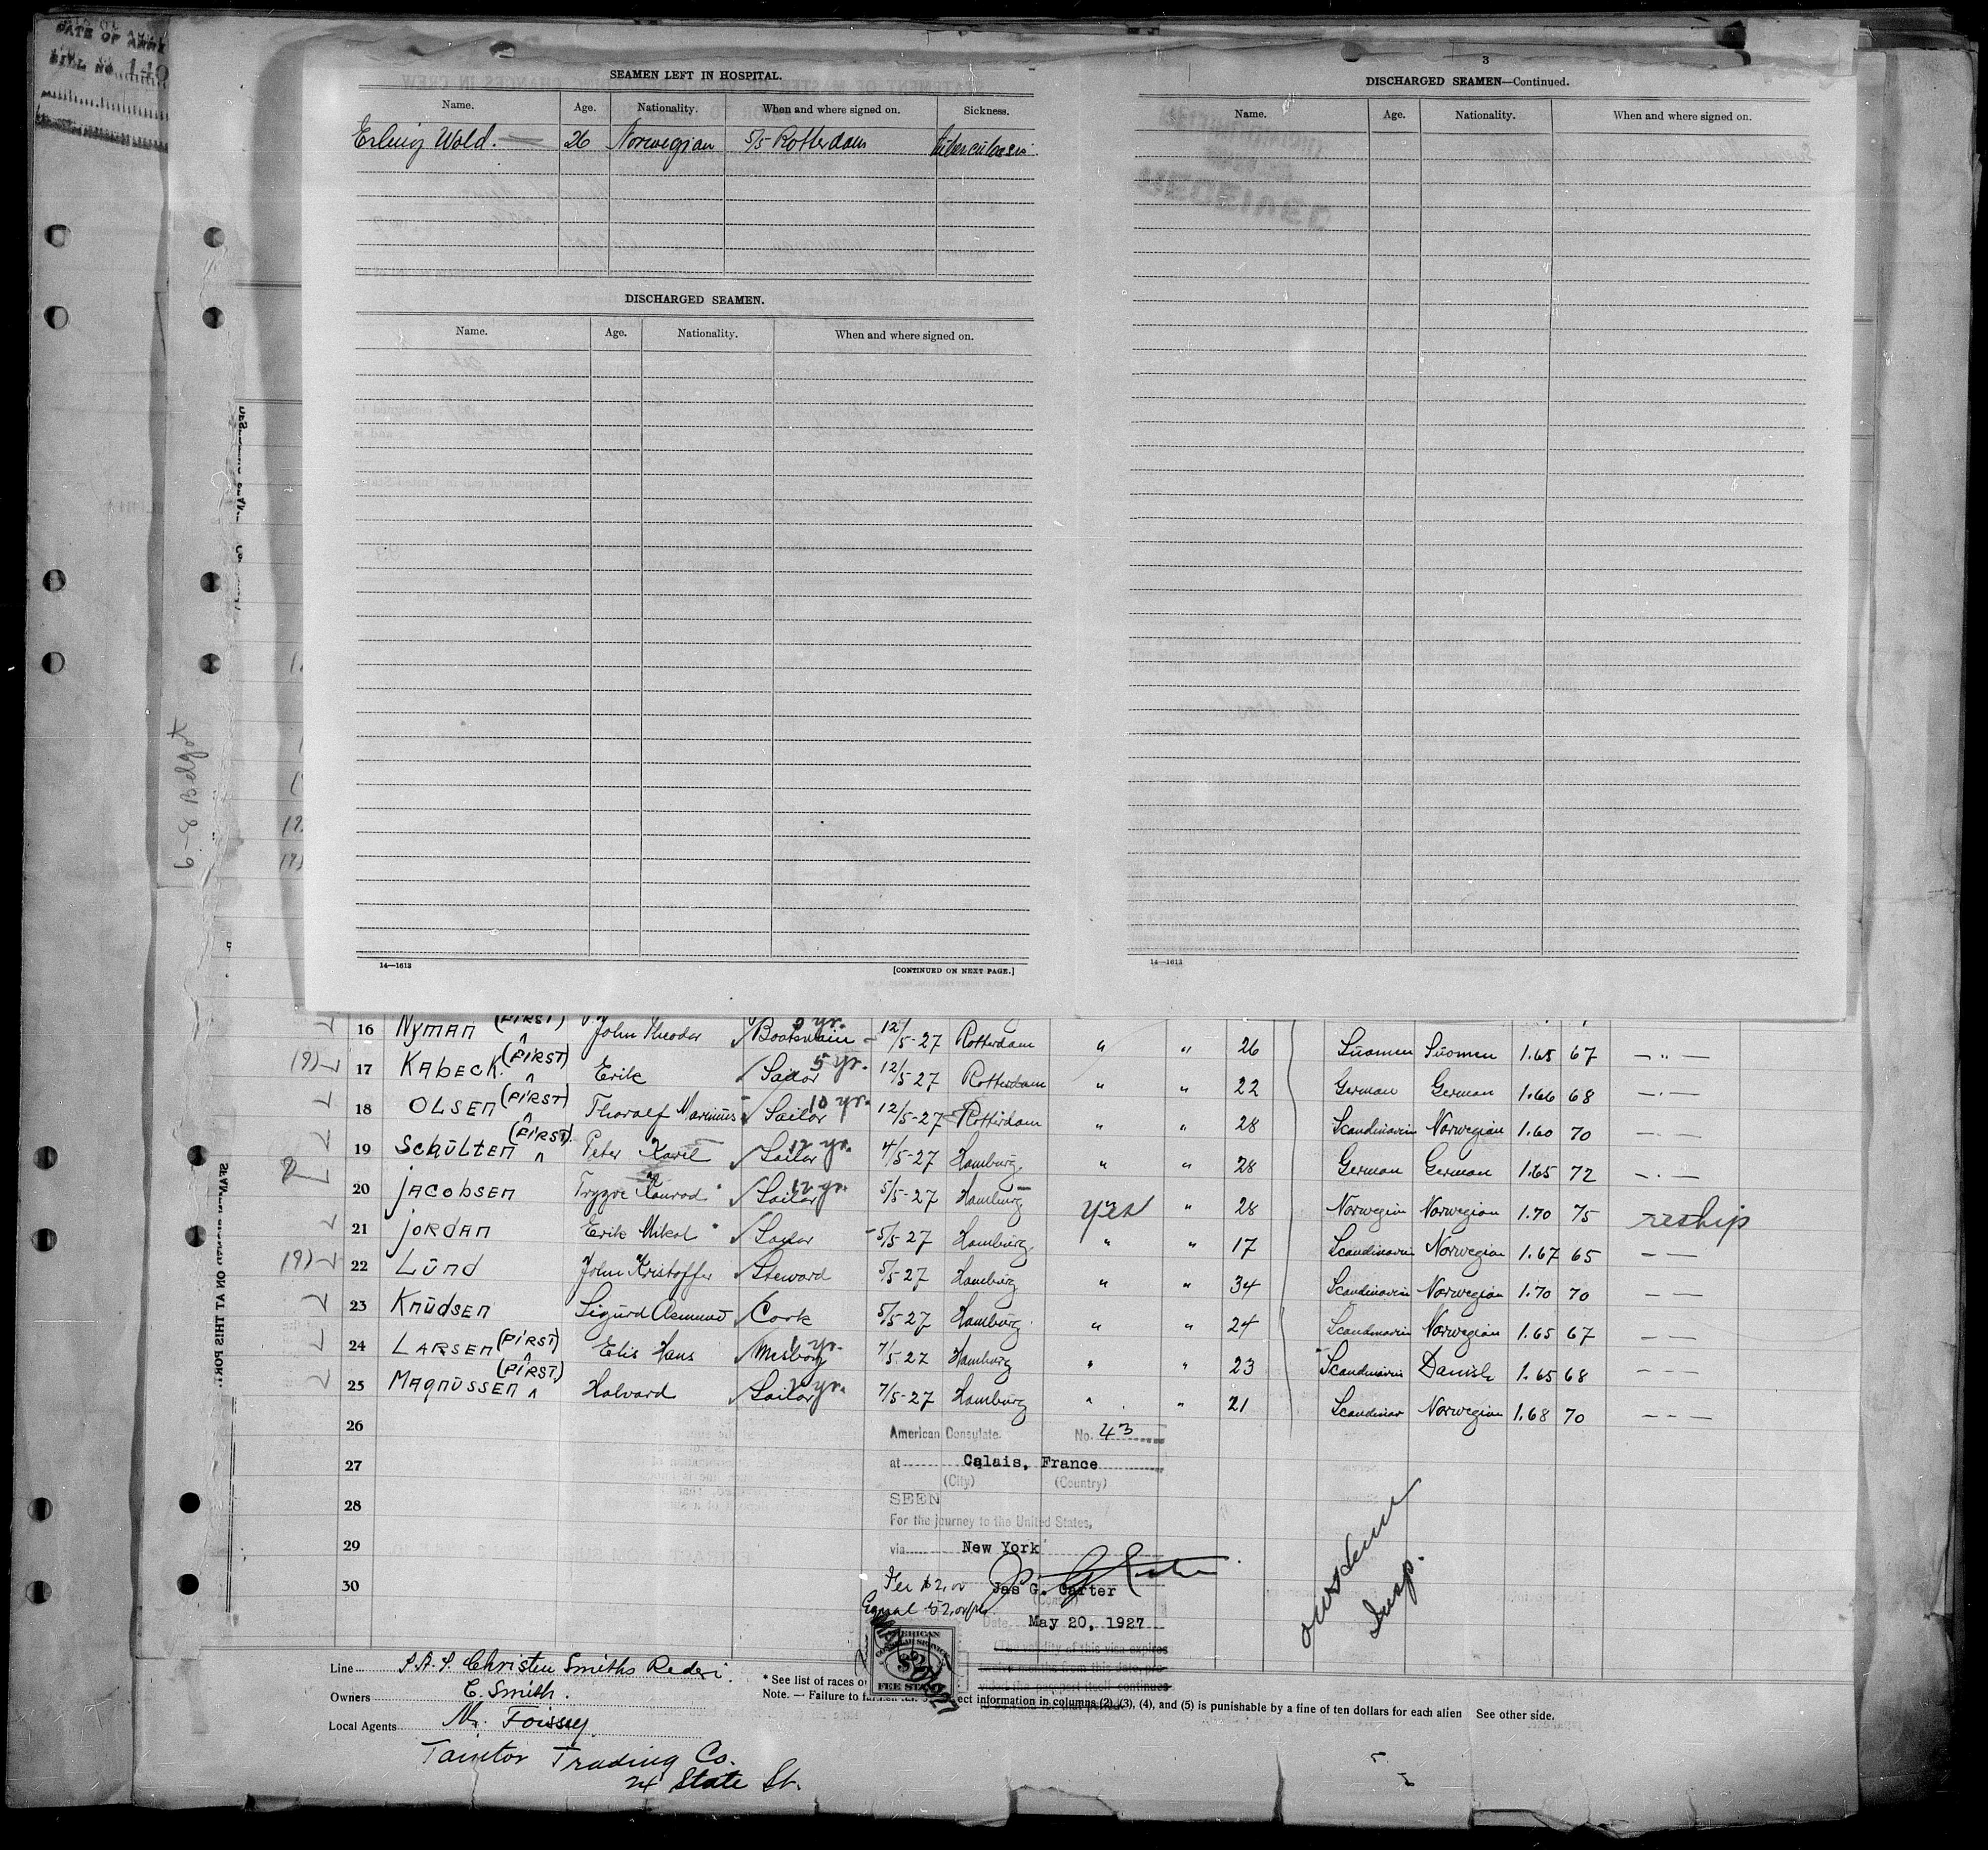 DATE OF ARRI
BILL No 140
SEAMEN LEFT IN HOSPITAL.
Name. Age. Nationality. When and where signed on. Sickness.
Erling Wold. 26 Norwegian 5/5 Rotterdam tuberculosis
DISCHARGED SEAMEN.
Name. Age. Nationality. When and where signed on.
14—1613 [CONTINUED ON NEXT PAGE.]
3
DISCHARGED SEAMEN—Continued.
Name. Age. Nationality. When and where signed on.
14—1613
6-8 Bdgot
16 Nyman (FIRST) John Theodor Boatswain 5 yr. 12/5-27 Rotterdam " " 26 Suomen Suomen 1.65 67 — " —
(9) 17 Kabeck (FIRST) Erik Sailor 5 yr. 12/5-27 Rotterdam " " 22 German German 1.66 68 — . —
18 Olsen (FIRST) Thoralf Marinus Sailor 10 yr. 12/5-27 Rotterdam " " 28 Scandinavin Norwegian 1.60 70 — . —
19 Schülten (FIRST) Peter Karil Sailor 12 yr. 4/5-27 Hamburg " " 28 German German 1.65 72 — . —
20 Jacobsen Trygve Konrad Sailor 12 yr. 5/5-27 Hamburg yes " 28 Norwegian Norwegian 1.70 75 reship
21 Jordan Erik Mikal Sailor 5/5-27 Hamburg " " 17 Scandinavin Norwegian 1.67 65 — —
(9) 22 Lünd John Kristoffer Steward 5/5-27 Hamburg " " 34 Scandinavin Norwegian 1.70 70 — —
23 Knüdsen Sigurd Asmund Cook 5/5-27 Hamburg " " 24 Scandinavin Norwegian 1.65 67 — —
24 Larsen (FIRST) Elis Hans Messboy 1 yr. 7/5-27 Hamburg " " 23 Scandinavin Danish 1.65 68 — —
25 Magnüssen (FIRST) Halvard Sailor yr. 7/5-27 Hamburg " " 21 Scandinav Norwegian 1.68 70 — - —
26 American Consulate No. 43
27 at Calais, France
(City) (Country)
28 SEEN
For the journey to the United States,
29 via New York
30 Fee $2.00 Jas G. Carter
(Consul)
Equal 52.00
Date May 20, 1927
(The validity of this visa expires
twelve months from this date, pro-
vided the passport itself continues
to be valid for that period.)
AMERICAN
CONSULAR SERVICE
$2
FEE STAMP
Insp.
Line S.A.S. Christen Smiths Rederi.
Owners C. Smith.
Local Agents M. Foissey
Taintor Trading Co.
24 State St.
* See list of races o
Note. — Failure to furnish ect information in columns (2), (3), (4), and (5) is punishable by a fine of ten dollars for each alien See other side.